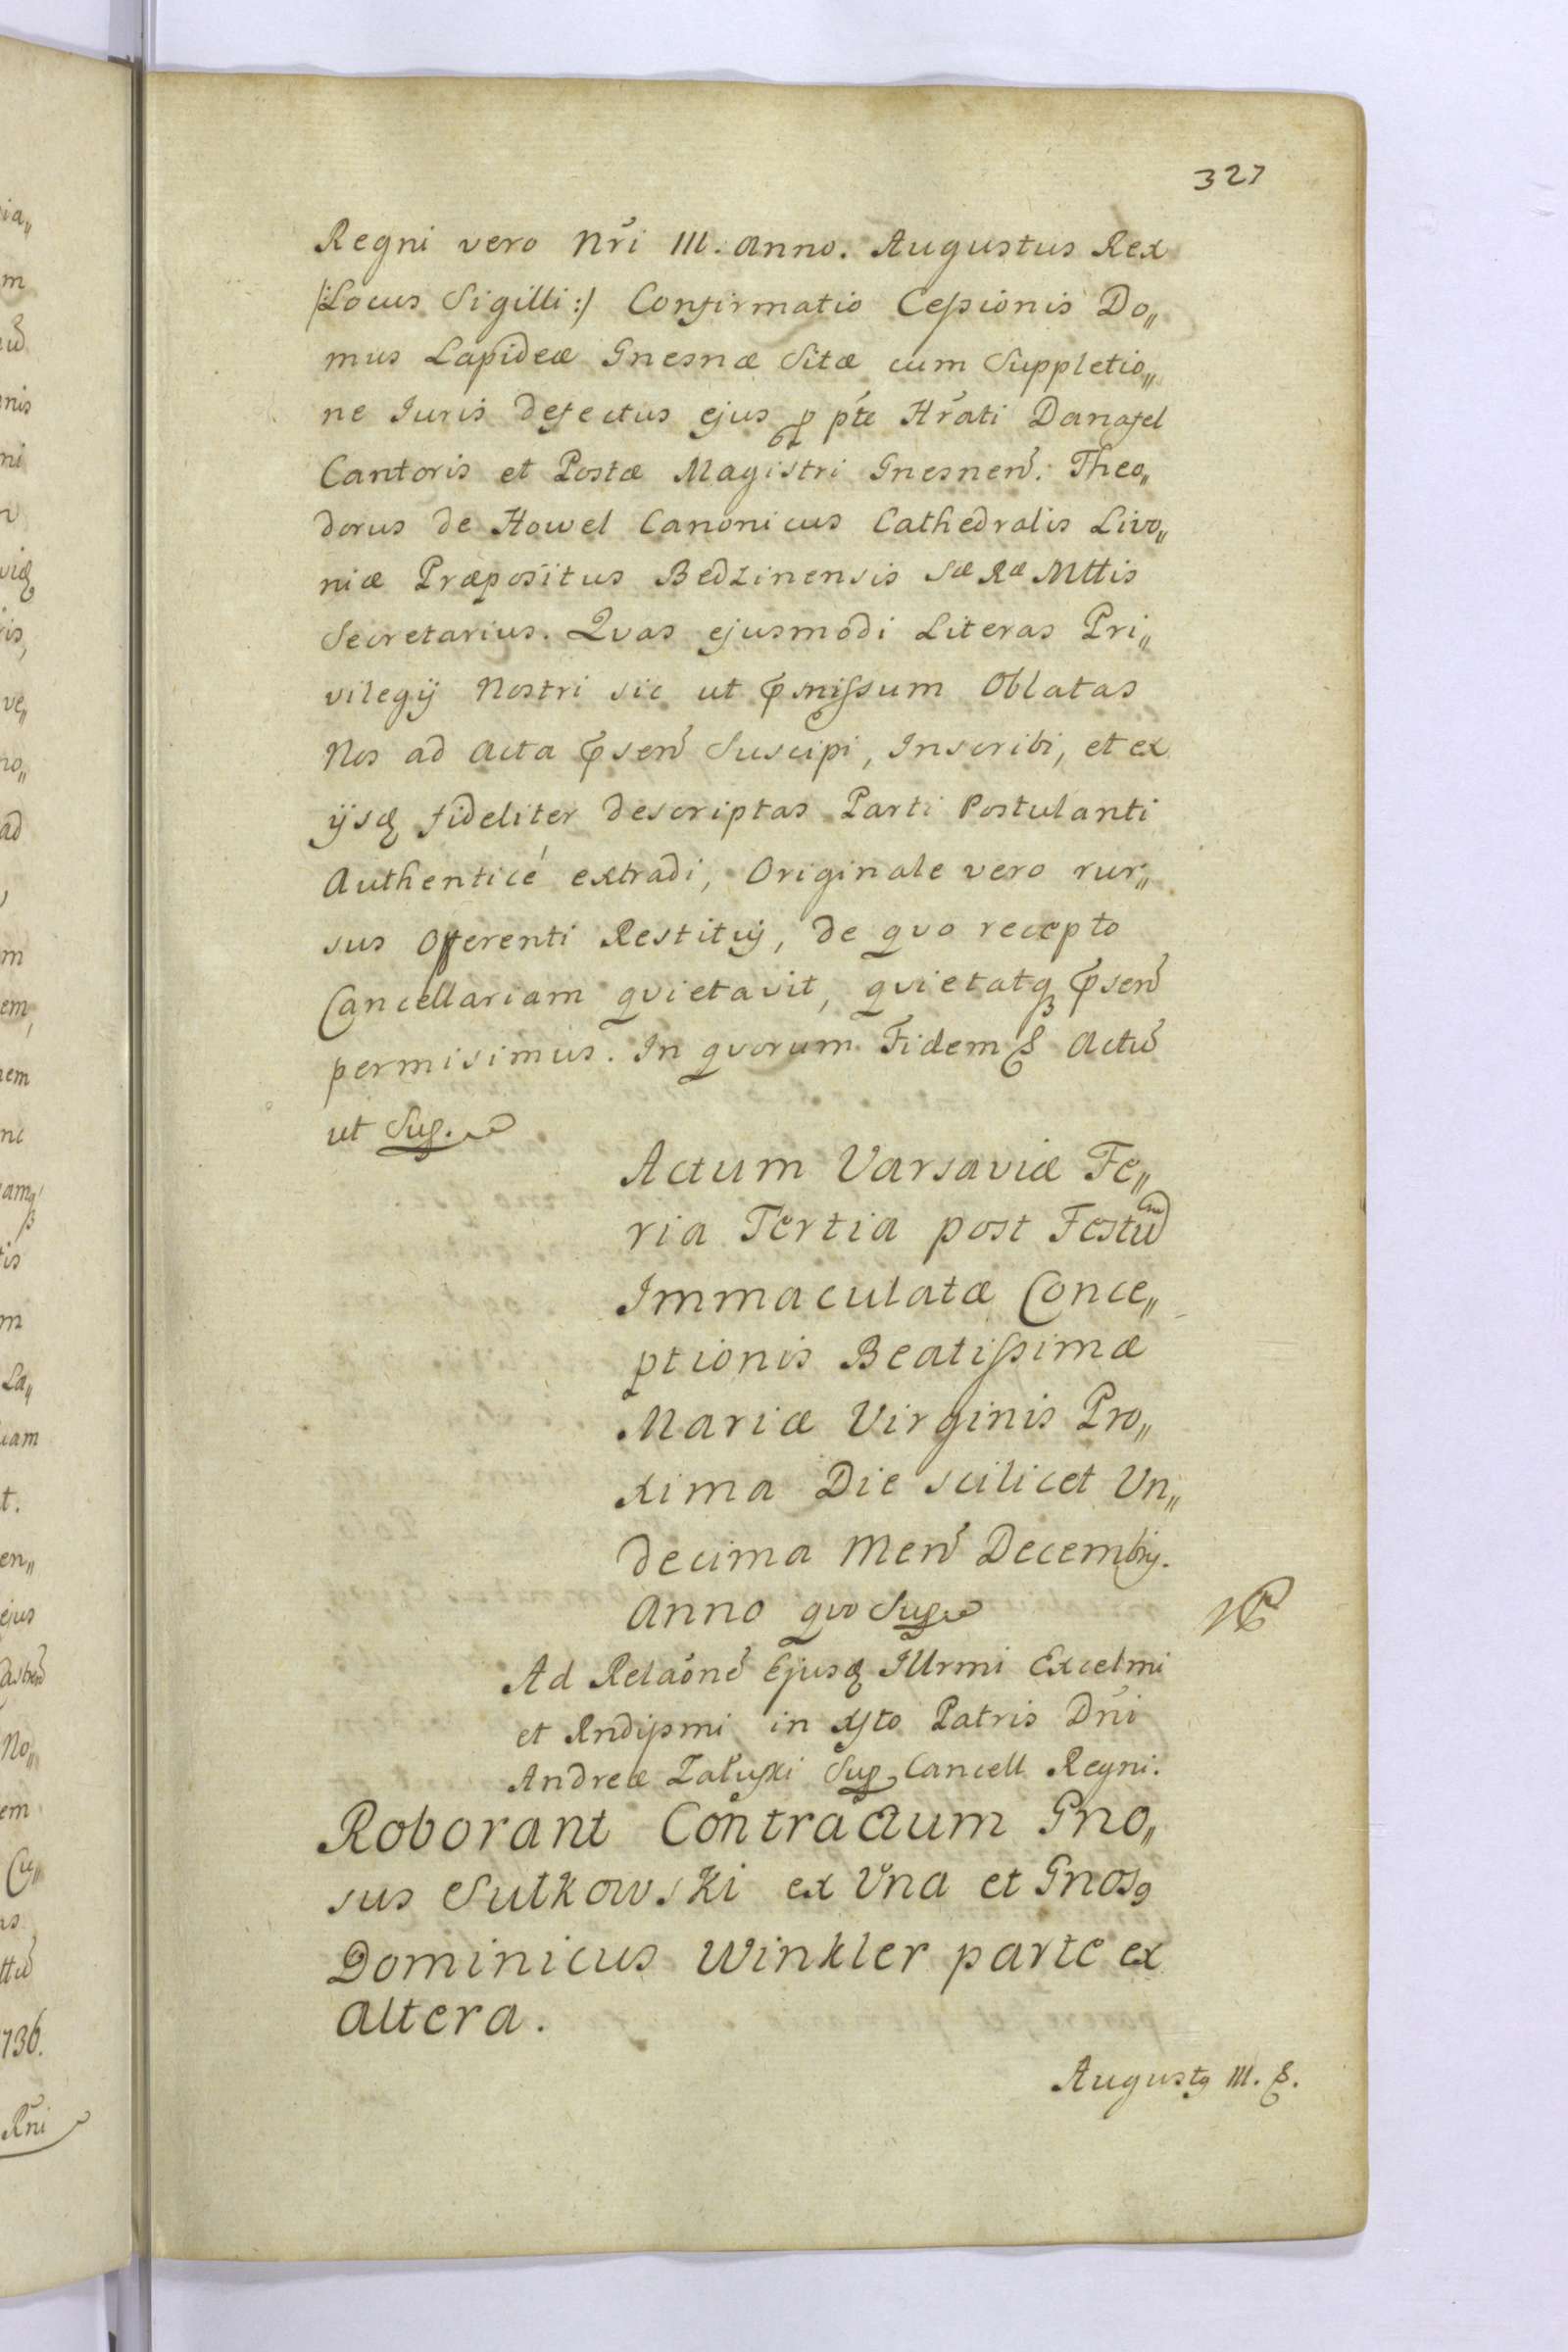 327
Regni vero Nr̃i III. Anno. Augustus Rex
/:Locus Sigilli:/ Confirmatio Cessionis Do„
mus Lapideæ Gnesnæ Sitæ cum Suppletio„
ne Iuris defectus ejus p pt̃e Hr̃ati Danafel
Cantoris et Postæ Magistri Gnesneñ. Theo„
dorus de Howel Canonicus Cathedralis Livo„
niæ Præpositus Bedzinensis Sæ Ræ Mttis
Secretarius. Qvas ejusmodi Literas Pri„
vilegij Nostri sic ut p̃missum Oblatas
Nos ad Acta p̃señ Suscipi, Inscribi, et ex
ijsq fideliter descriptas Parti Postulanti
Authenticé extradi, Originale vero rur„
sus Offerenti Restituj, de qvo recepto
Cancellariam qvietavit, qvietatq p̃señ
permisimus. In qvorum Fidem & Actũ
ut Sup.
Actum Varsaviæ Fe„
ria Tertia post Festũ
Immaculatæ Conce„
ptionis Beatissimæ
Mariæ Virginis Pro„
xima Die scilicet Un„
decima Meñ Decembrij.
Anno qvo Sup
Ad Relãonẽ Ejusq Illrmi Excelmi
et Rndissmi in Xsto Patris Dñi
Andreæ Załuski Sup. Cancell Regni.
Roborant Contractum Gno„
sus Sułkowski ex Una et Gnos9
Dominicus Winkler parte ex
altera.
August9 III. &.